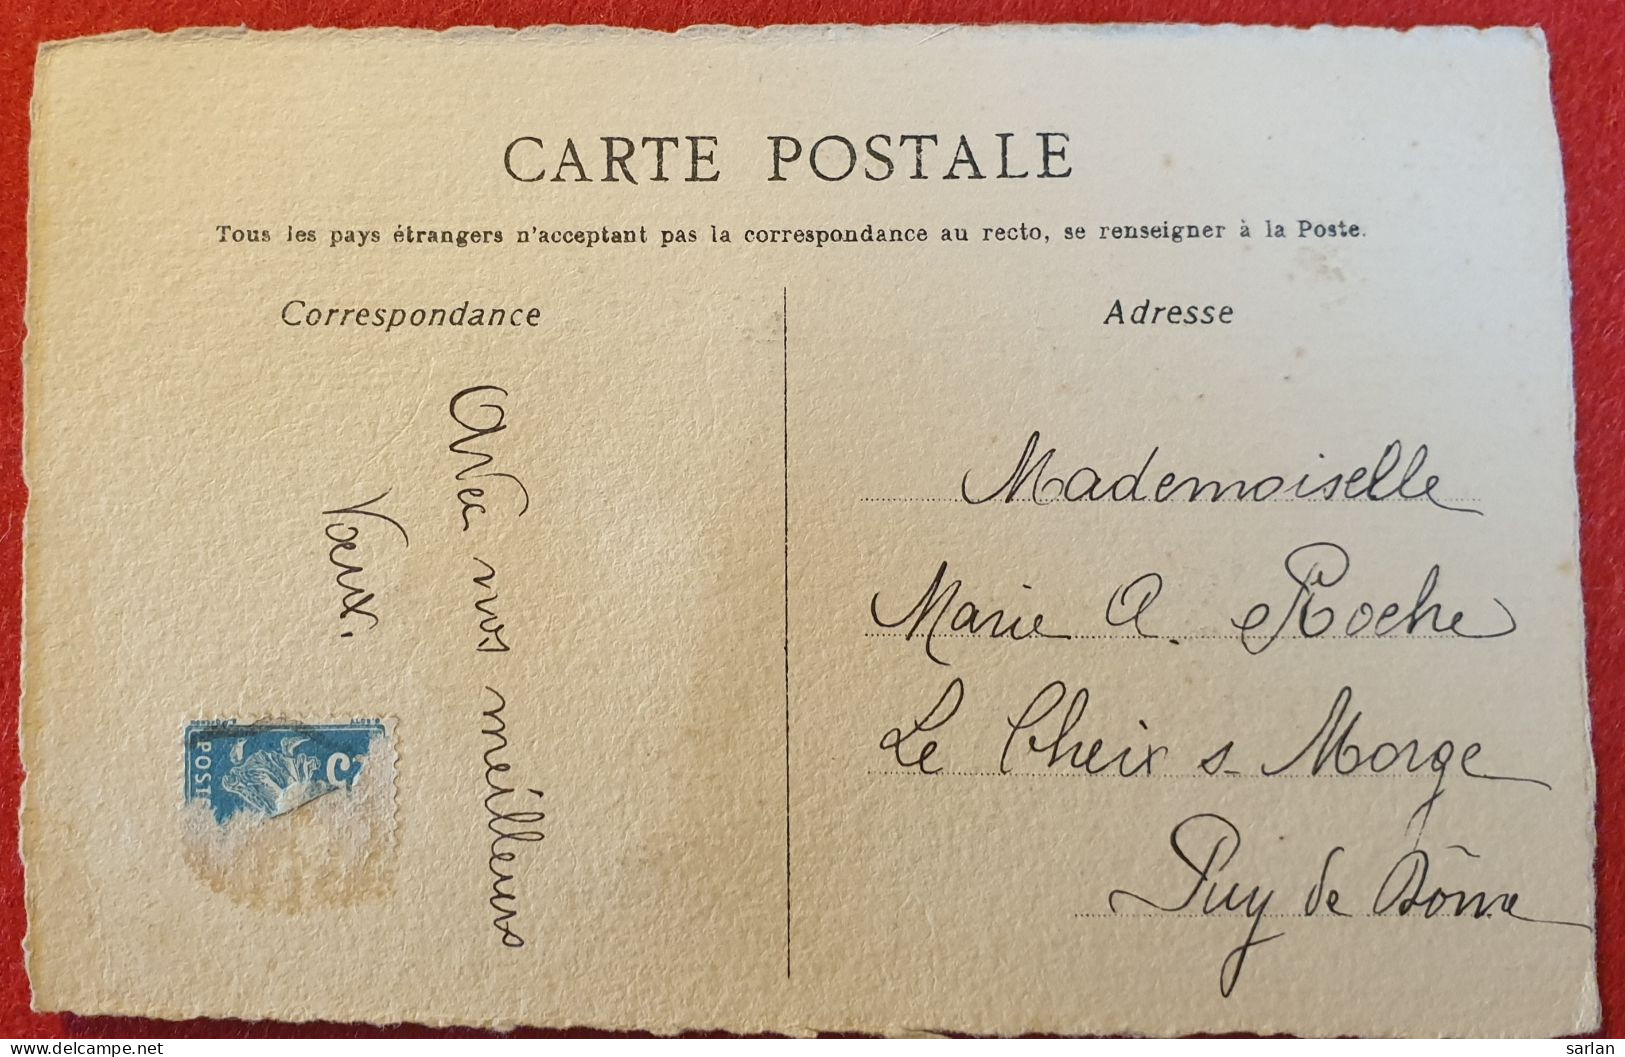 CARTE POSTALE
Tous les pays étrangers n'acceptant pas la correspondance au recto, se renseigner à la Poste.
Correspondance
Avec nos meilleurs
Vœux.
POST
25
Adresse
Mademoiselle
Marie A. Roche
Le Cheix s- Morge
Puy de Dôme
delcampe.net
sarlan